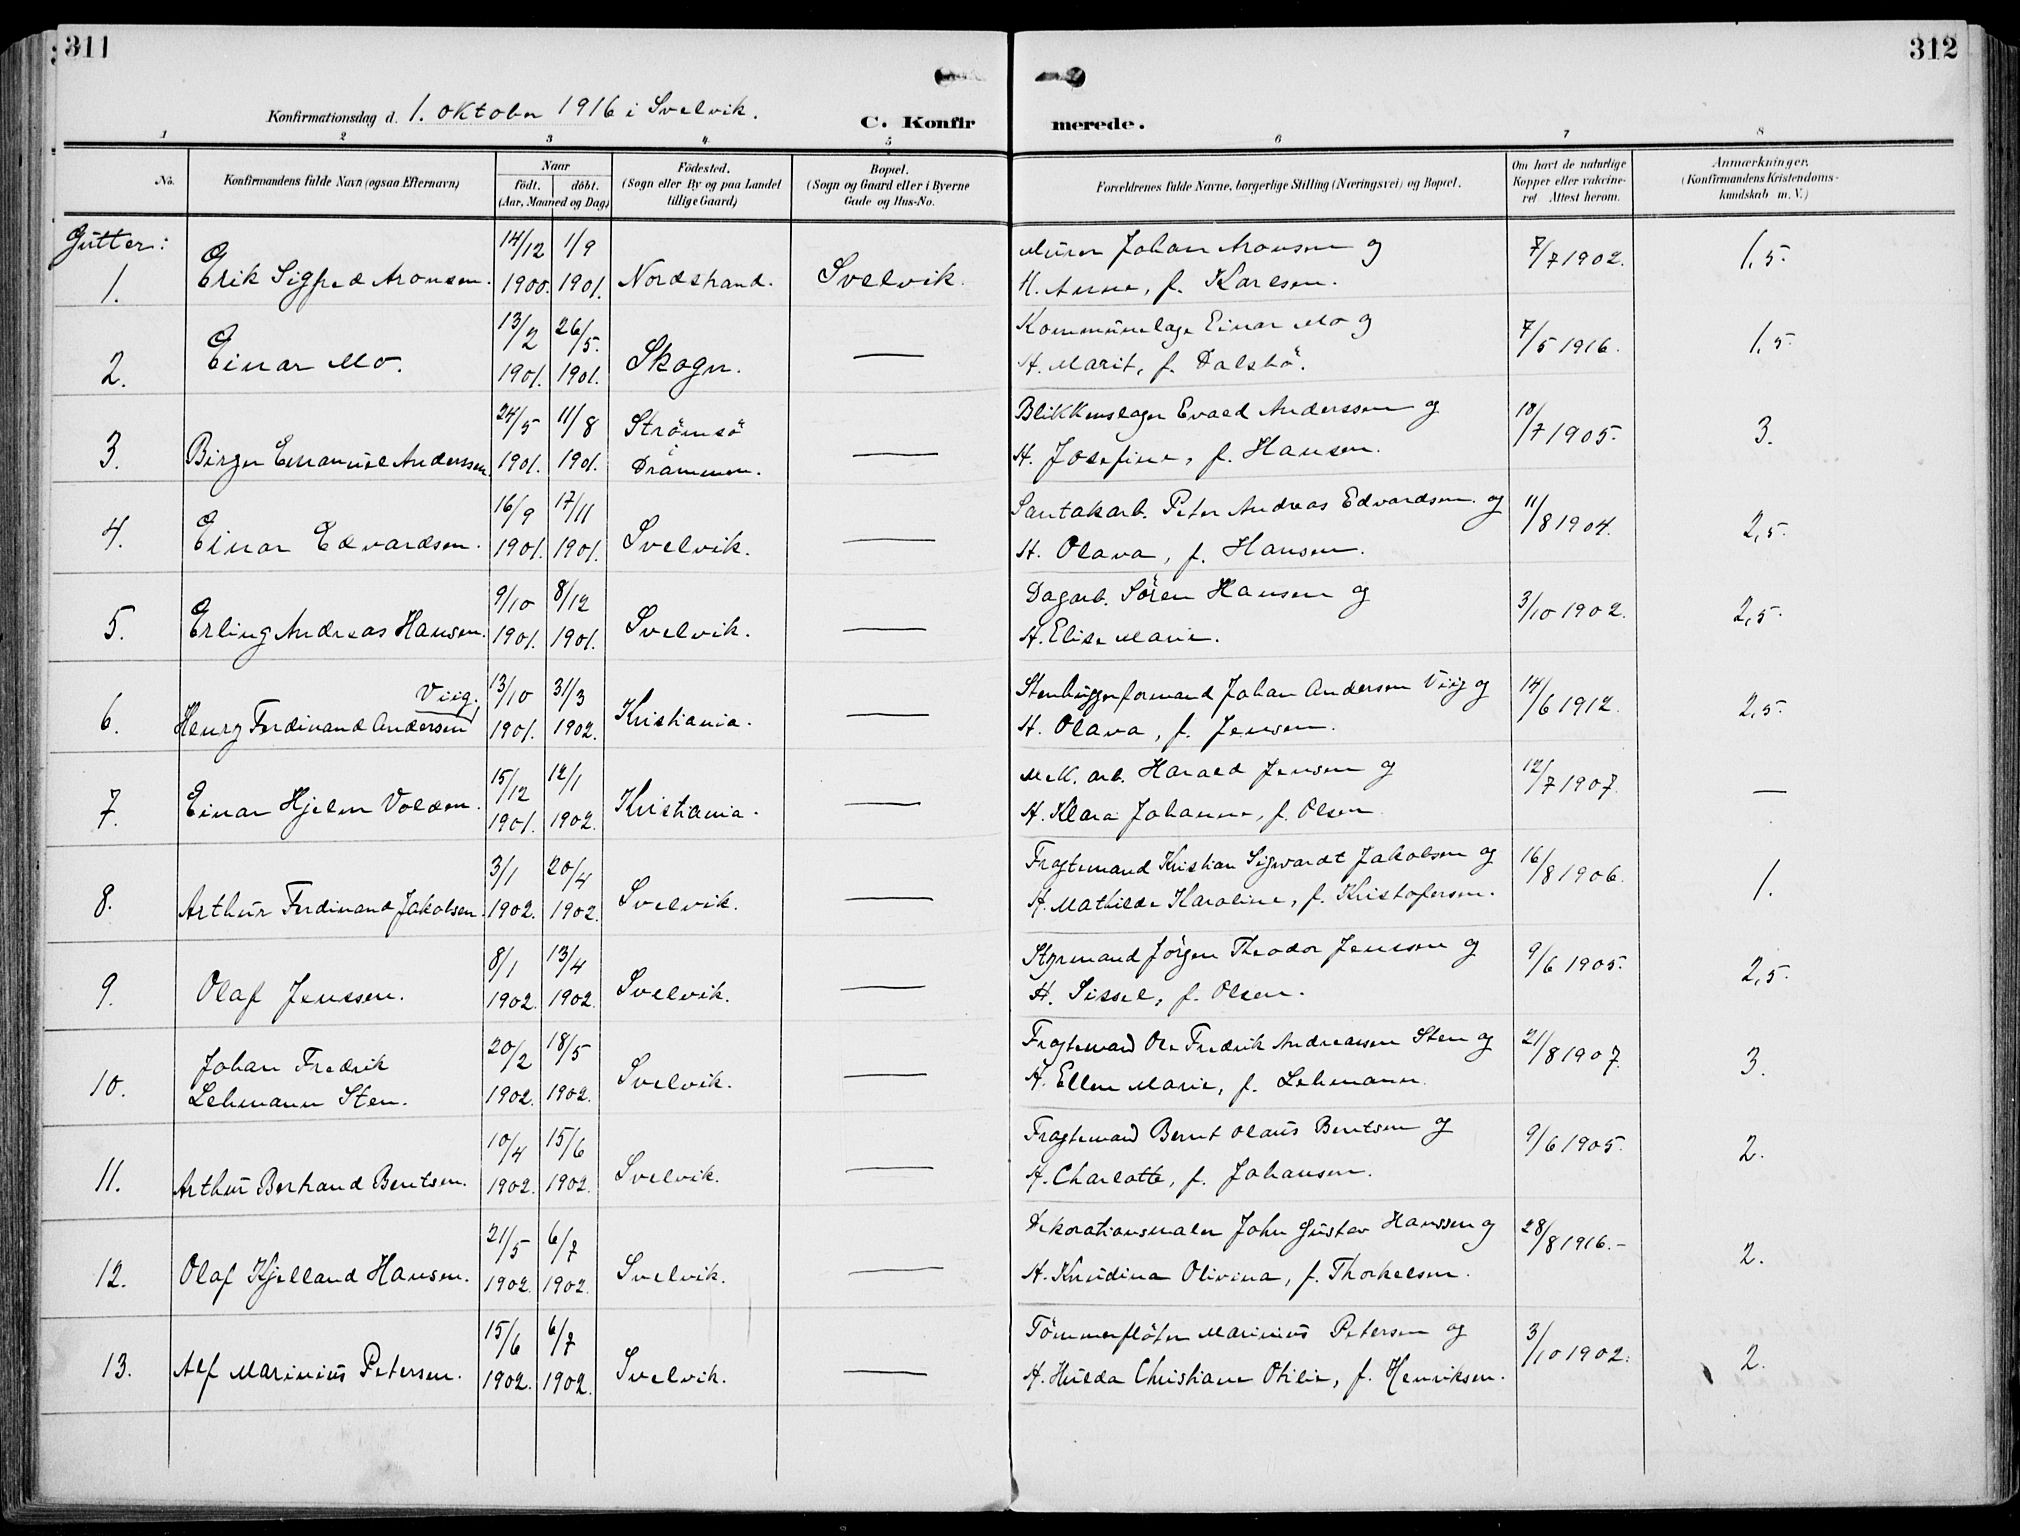 311
312
Konfirmationsdag d. 1. oktober 1916 i Svelvik.
C. Konfirmerede.
1 2 3 4 5 6 7 8
No.
Konfirmandens fulde Navn (ogsaa Efternavn)
Naar
födt. döbt.
(Aar, Maaned og Dag)
Födested.
(Sogn eller By og paa Landet
tillige Gaard)
Bopæl.
(Sogn og Gaard eller i Byerne
Gade og Hus-No.
Forældrenes fulde Navne, borgerlige Stilling (Næringsvei) og Bopæl.
Om havt de naturlige
Kopper eller vakcine-
ret Attest herom.
Anmærkninger.
(Konfirmandens Kristendoms-
kundskab m. V.)
Gutter:
14/12 1/9 Murer Johan Aronsen og 7/7 1902. 1,5.
1. Erik Sigfred Aronsen. 1900. 1901. Nordstrand. Svelvik. H. Anna, f. Karlsen.
13/2 26/5. Kommunelæge Einar Mo og 7/5 1916. 1,5.
2. Einar Mo. 1901. 1901. Skogn. — H. Marit, f. Dalsbö.
24/5 11/8 Strömsö Blikkenslager Evald Anderssen og 18/7 1905. 3.
3. Birger Emanuel Anderssen 1901. 1901. Drammen. — H. Josefine, f. Hansen.
16/9 17/11 Peter Andreas Edvardsen og 11/8 1904. 2,5.
4. Einar Edvardsen. 1901. 1901. Svelvik. — H. Olava, f. Hansen.
9/10 8/12 Dagarb. Sören Hansen og 3/10 1902. 2,5.
5. Erling Andreas Hansen. 1901. 1901. Svelvik. — H. Elise Marie.
Viig. 13/10 31/3 Stenhuggerformand Johan Andersen Viig og 14/6 1912. 2,5.
6. Henry Ferdinand Andersen 1901. 1902. Kristiania. — H. Olava, f. Jensen.
15/12 12/1 Mek. arb. Harald Jensen og 12/7 1907. —
7. Einar Hjelm Volden. 1901. 1902. Kristiania. — H. Klara Johanne, f. Olsen.
3/1 20/4 Fragtemand Kristian Sigwardt Jakobsen og 16/8 1906. 1.
8. Arthur Ferdinand Jakobsen. 1902. 1902. Svelvik. — H. Mathilde Karoline, f. Kristofersen.
8/1 13/4 Styrmand Jörgen Theodor Jenssen og 9/6 1905. 2,5.
9. Olaf Jenssen. 1902. 1902. Svelvik. — H. Sissel, f. Olsen.
Johan Fredrik 20/2 18/5 Fragtemand Ole Fredrik Andreassen Sten og 21/8 1907. 3.
10. Lehmann Sten. 1902. 1902. Svelvik. — H. Ellen Marie, f. Lehmann.
10/4 15/6 Fragtemand Bernt Olaus Bentsen og 9/6 1905. 2.
11. Arthur Berhand Bentsen. 1902. 1902. Svelvik. — H. Charlotte, f. Johansen.
21/5 6/7 Dekorationsmaler John Gustav Hanssen og 28/8 1916.- 2.
12. Olaf Kjelland Hansen. 1902. 1902. Svelvik. — H. Knudina Olivina, f. Thorkelsen.
15/6 6/7 Tömmerflöter Marinius Petersen og 3/10 1902. 2.
13. Alf Marinius Petersen. 1902. 1902. Svelvik. — H. Hulda Christiane Otilie, f. Henriksen.